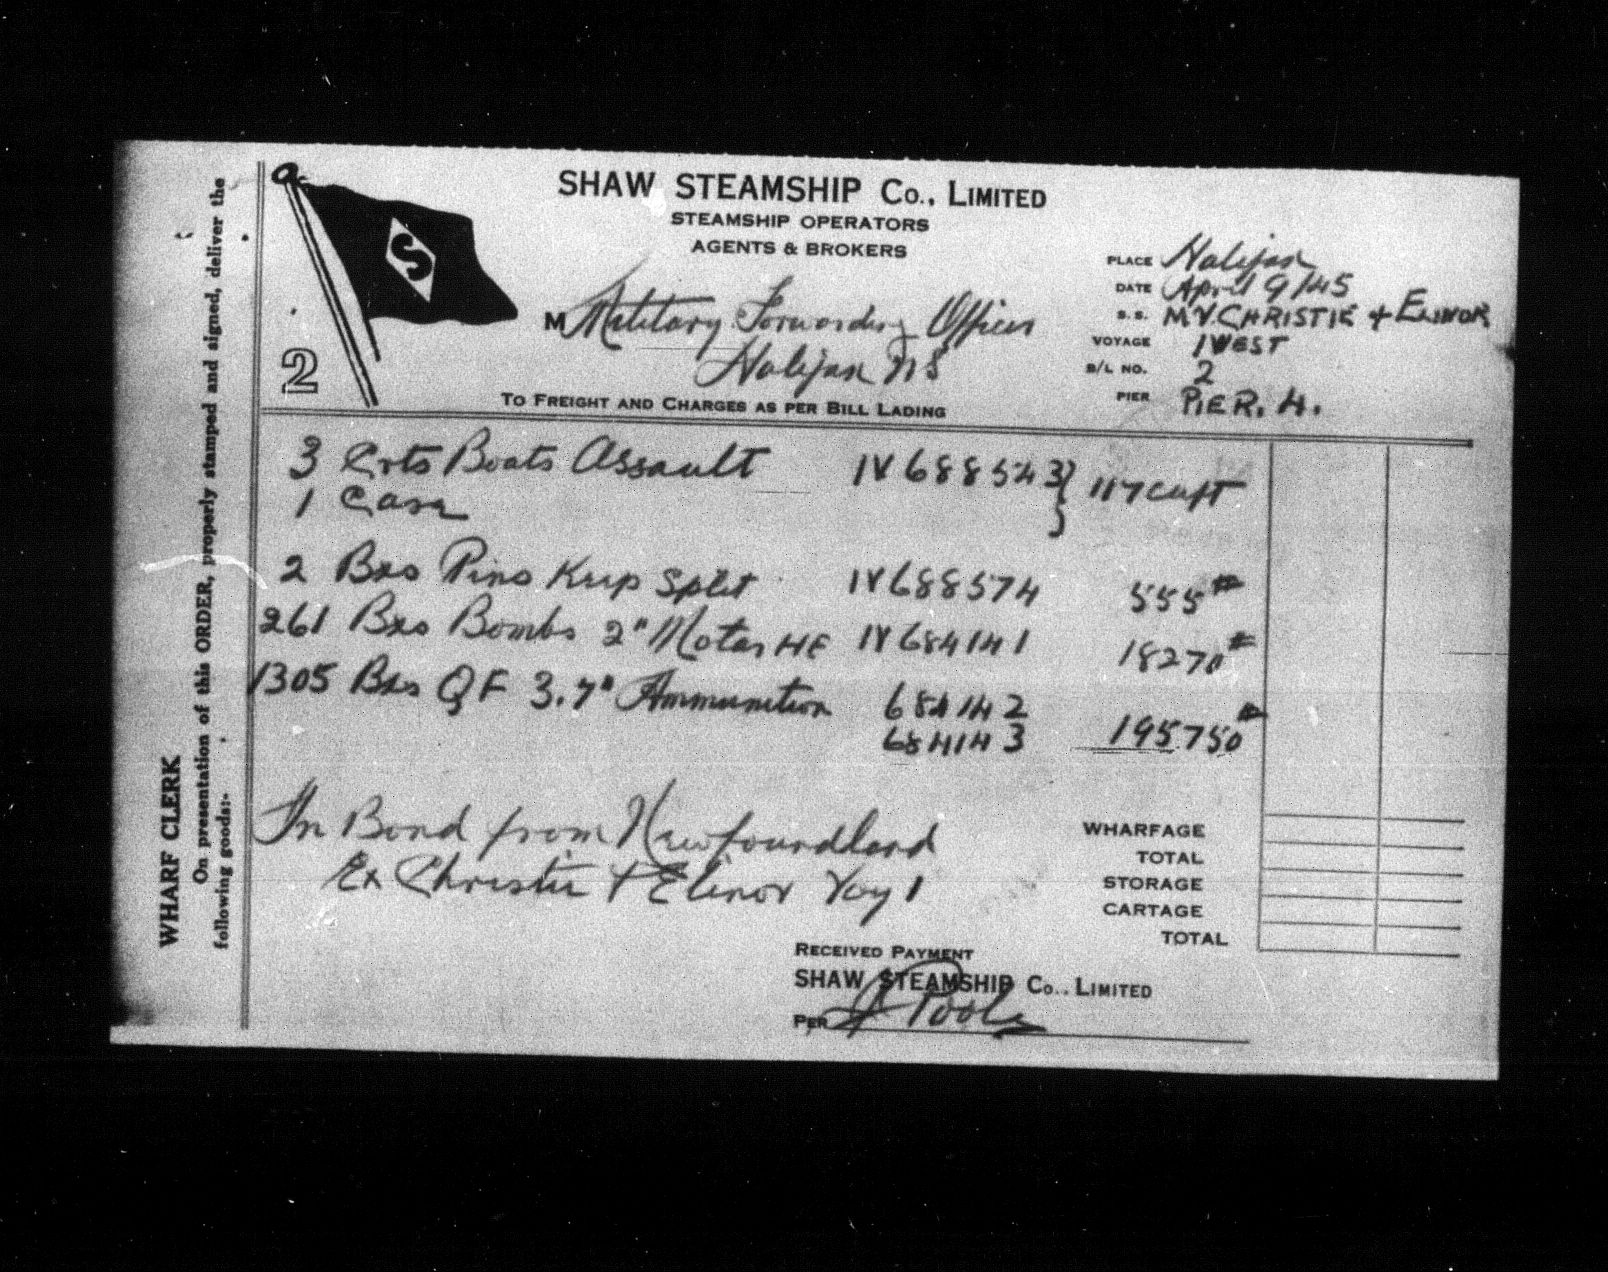 SHAW STEAMSHIP Co., LIMITED
STEAMSHIP OPERATORS
AGENTS & BROKERS
S
2
PLACE Halifax
DATE April 9/45
S.S. M.V. CHRISTIE + ELINOR
VOYAGE 1 WEST
B/L NO. 2
PIER PIER. H.
M Military Forwarding Officer
Halifax NS
TO FREIGHT AND CHARGES AS PER BILL LADING
3 Crts Boats Assault IV 688543 } 117 cuft
1 Case
2 Bxs Pins Keep Split IV 688574 555#
261 Bxs Bombs 2" Motar HE IV 684141 18270#
1305 Bxs QF 3.7" Ammunition 684142
684143 195750#
In Bond from Newfoundland
Ex Christie + Elinor Voy 1
WHARFAGE
TOTAL
STORAGE
CARTAGE
TOTAL
RECEIVED PAYMENT
SHAW STEAMSHIP Co., LIMITED
PER Poole
WHARF CLERK
On presentation of this ORDER, properly stamped and signed, deliver the
following goods:-